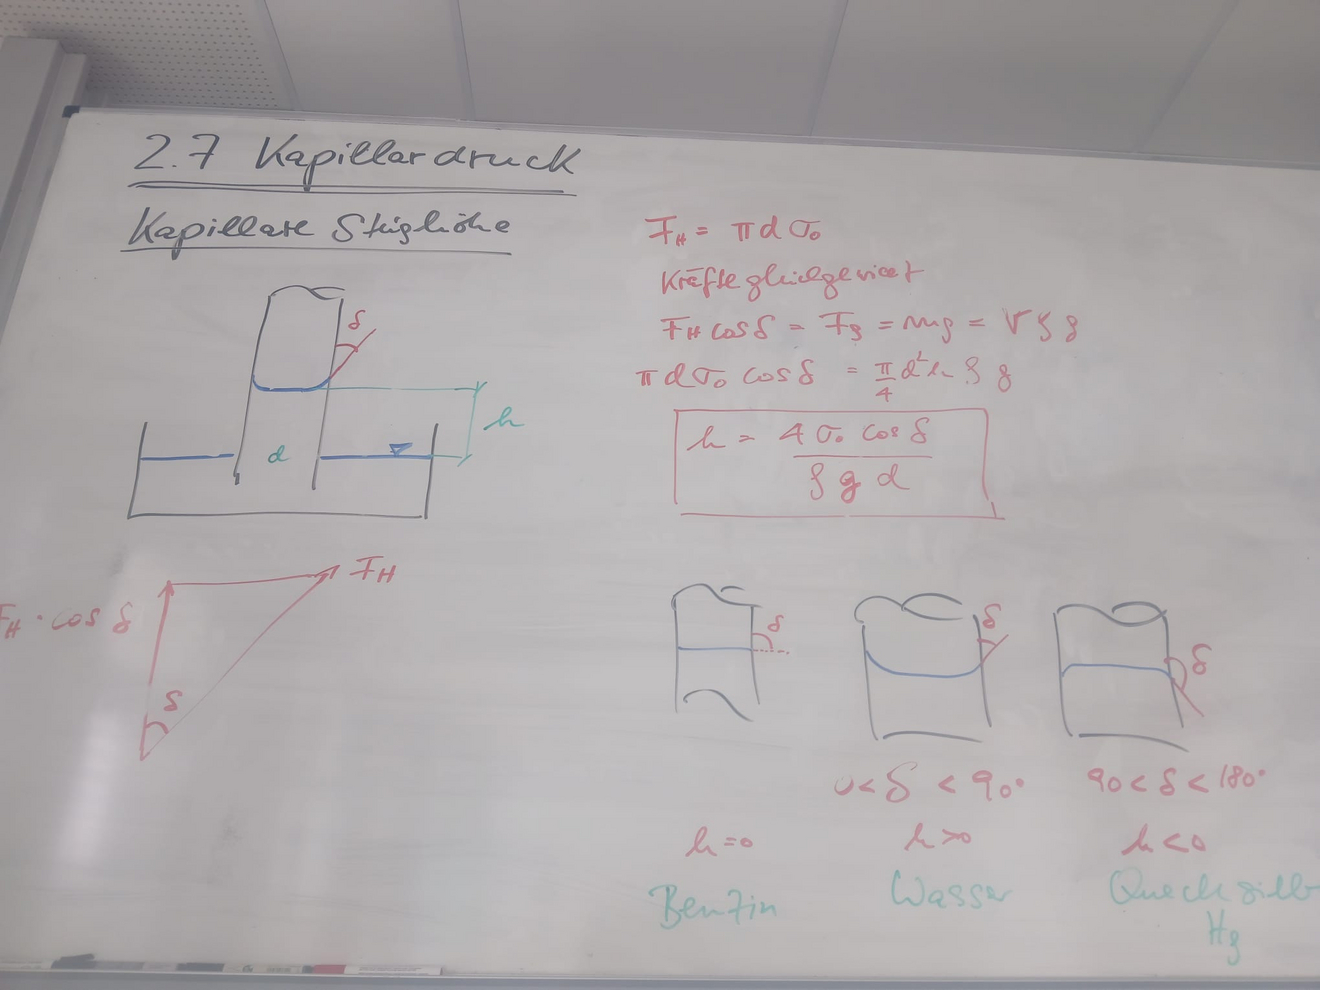 2.7 Kapillardruck
Kapillare Steighöhe
δ
h
d
F_H
F_H · cos δ
δ
F_H = π d σ₀
Kräftegleichgewicht
F_H cos δ = F_g = mg = V ρ g
π d σ₀ cos δ = π/4 d² h ρ g
h = 4 σ₀ cos δ / ρ g d
δ δ δ
0 < δ < 90° 90 < δ < 180°
h = 0 h > 0 h < 0
Benzin Wasser Quecksilb
Hg